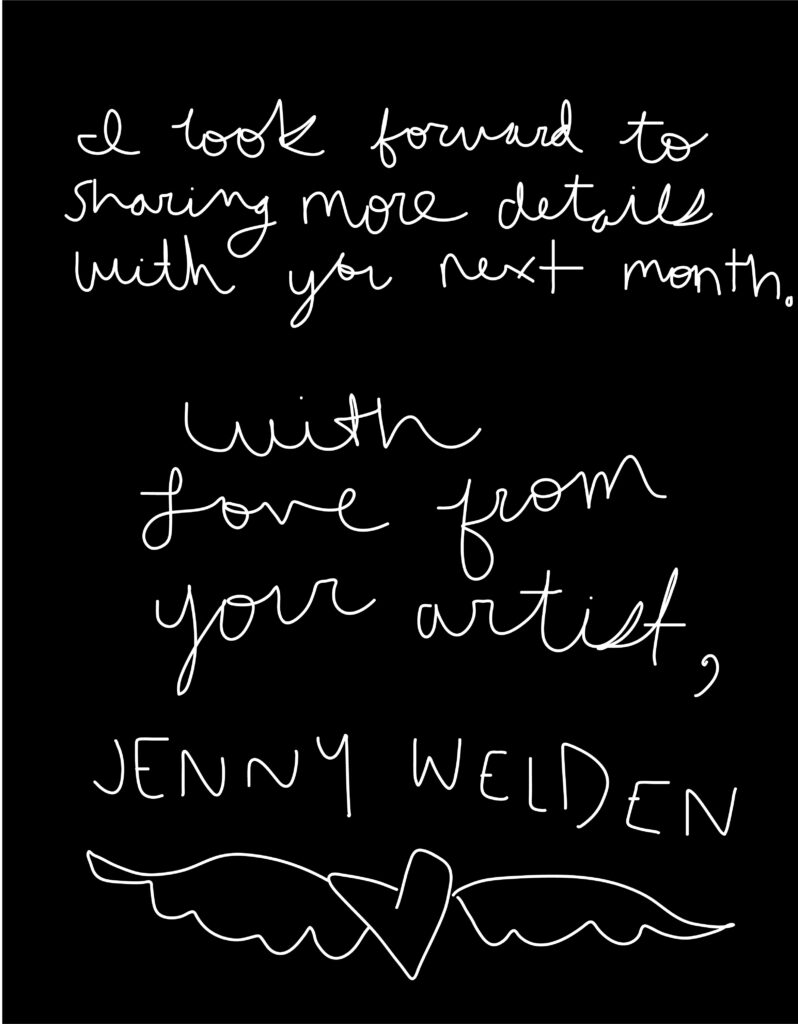 I look forward to
sharing more details
with you next month.
with
Love from
your artist,
JENNY WELDEN